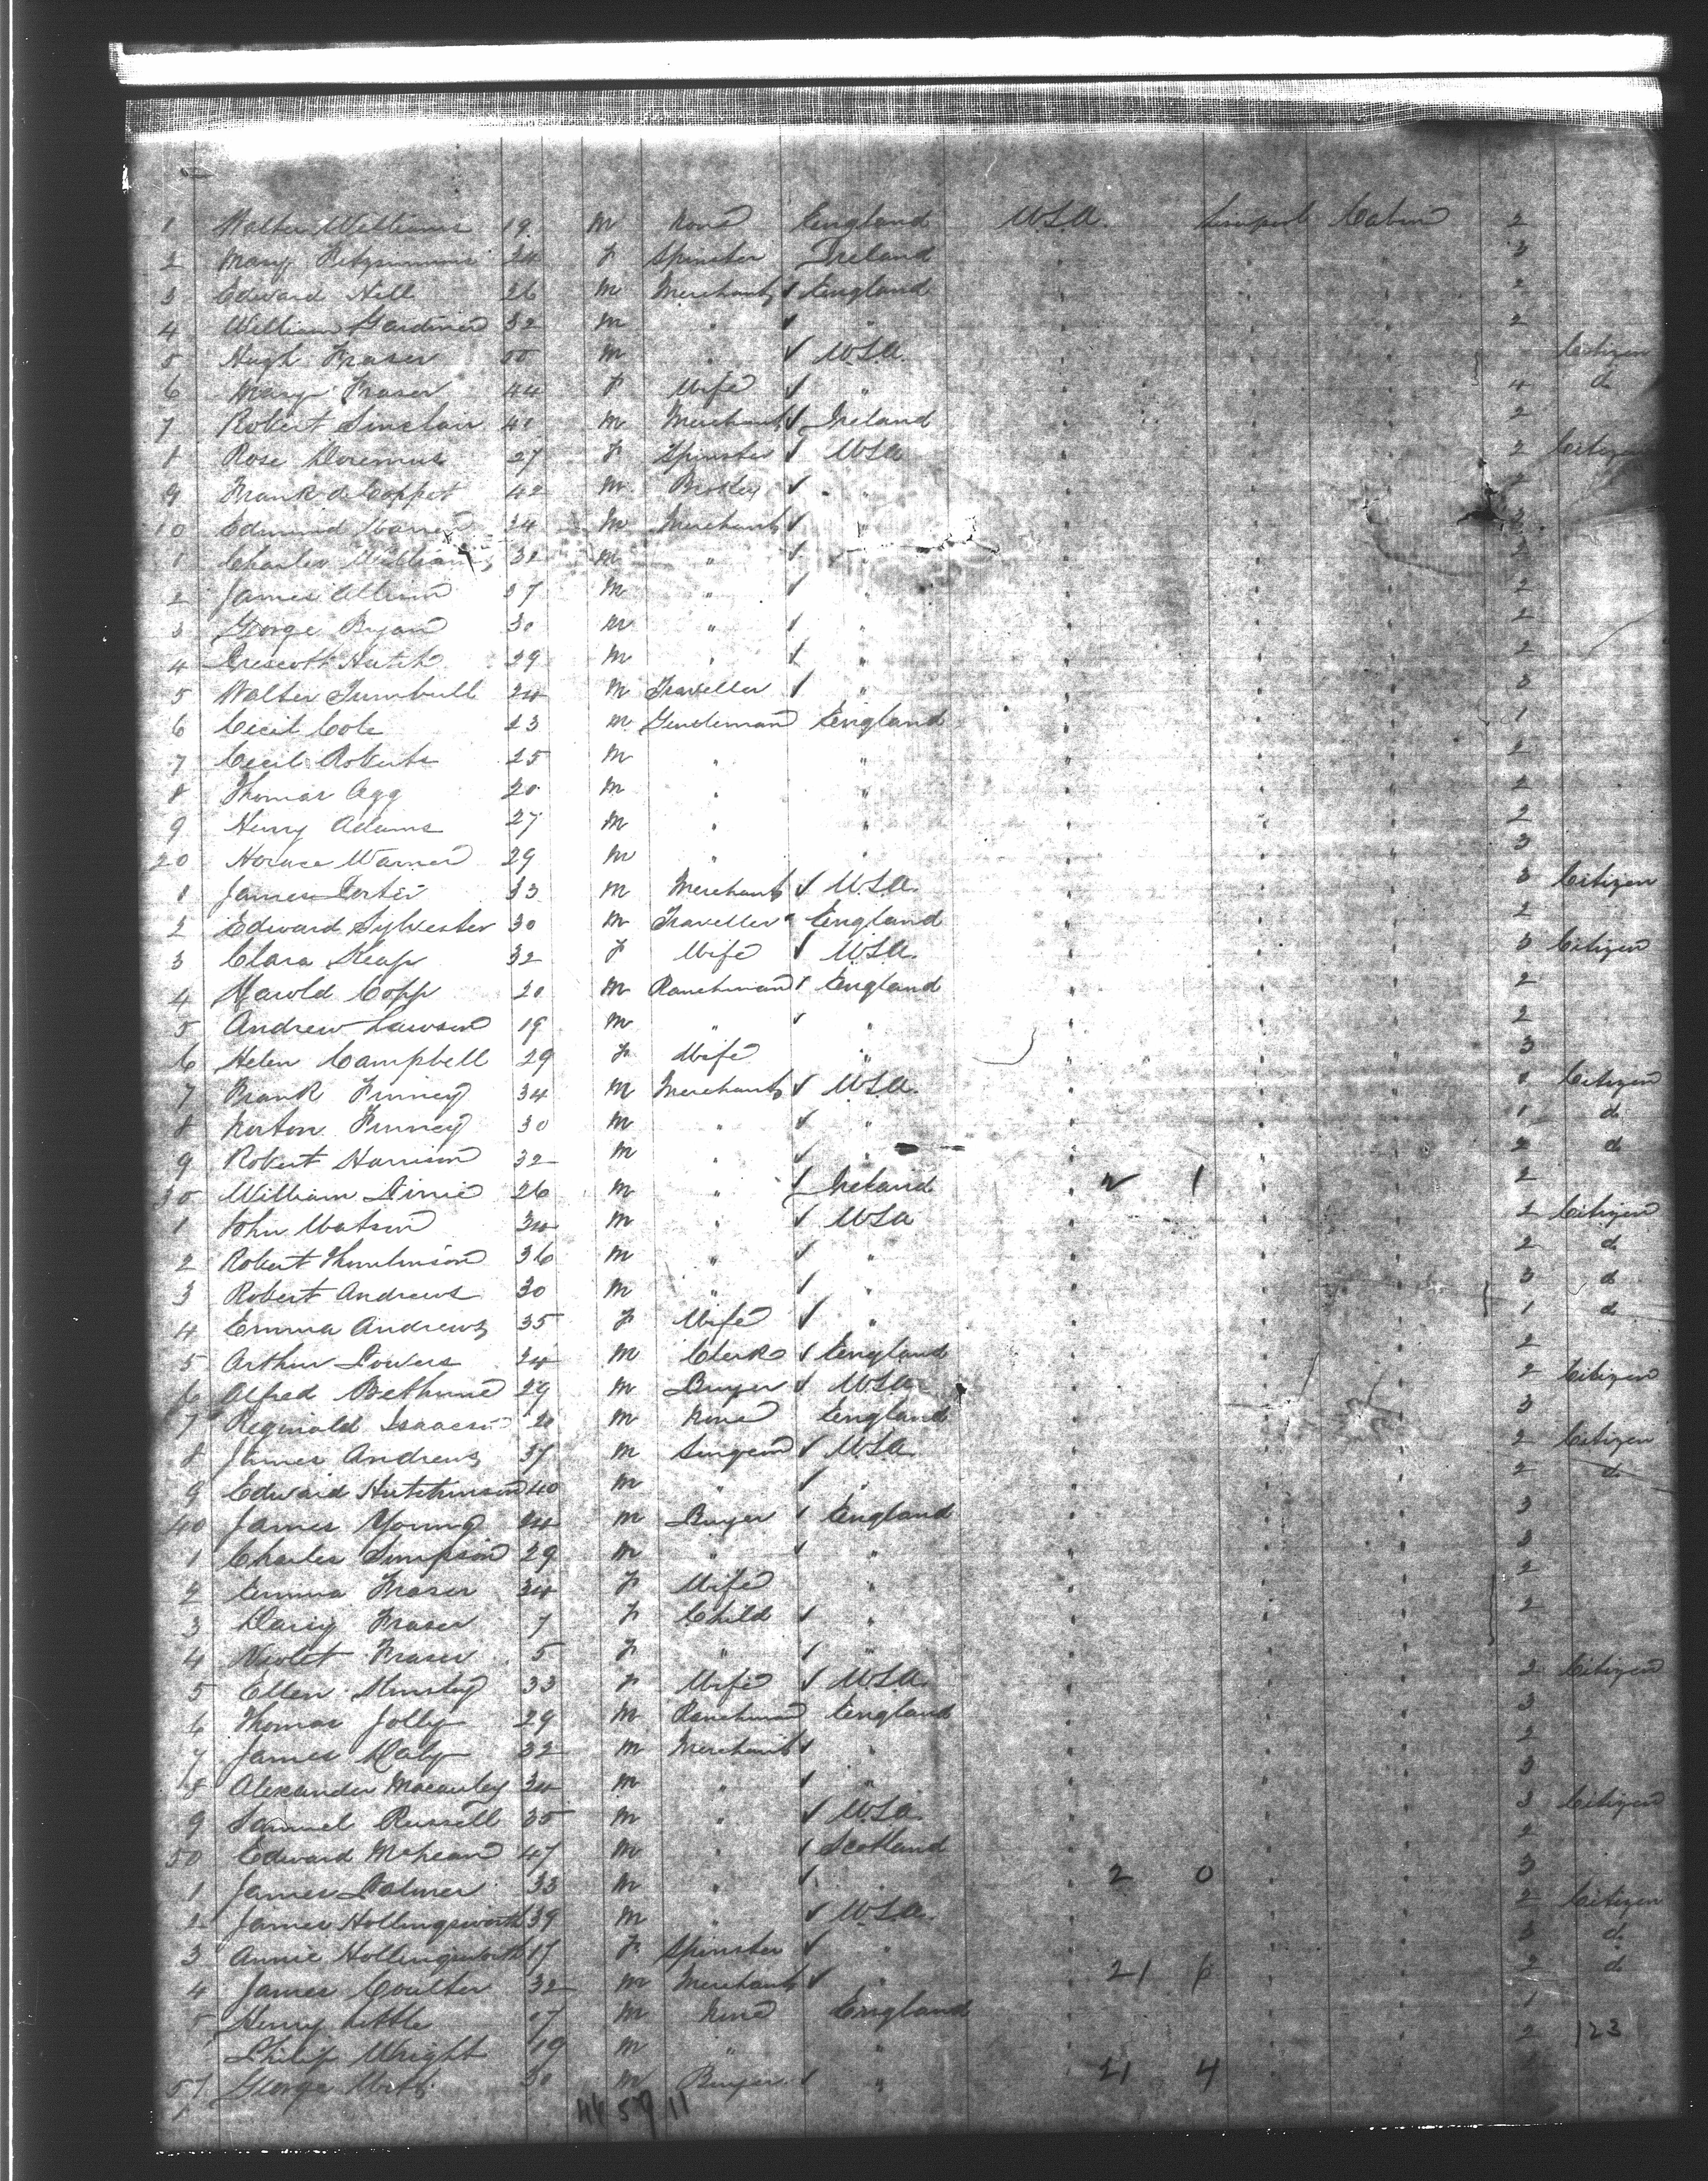 1 Walter Williams 19 M None England U.S.A. Liverpool Cabin 2
2 Mary Fitzsimmons 24 F Spinster Ireland " " " 3
3 Edward Hill 26 M Merchant England " " " 2
4 William Gardiner 32 M " " " " " 2
5 Hugh Fraser M " U.S.A. " " " Citizen
6 Mary Fraser 44 F Wife " " " " 4 do
7 Robert Sinclair 41 M Merchant Ireland " " " 2
8 Rose Doremus 27 F Spinster U.S.A. " " " 2 Citizen
9 Frank de Coppet 42 M " " " "
10 Edmund 34 M Merchant " " " "
1 Charles Williams 32 M " " " " " 2
2 James Allison 37 M " " " " " 2
3 George Ryan 30 M " " " " " 2
4 Prescott Hatch 29 M " " " " " 2
5 Walter Turnbull 24 M Traveller " " " " 3
6 Cecil Cole 23 M Gentleman England " " " 1
7 Cecil Roberts 25 M " " " " " 2
8 Thomas Agg 20 M " " " " " 2
9 Henry Adams 27 M " " " " " 2
20 Horace Warner 29 M " " " " " 3
1 James Porter 33 M Merchant U.S.A. " " " 3 Citizen
2 Edward Sylvester 30 M Traveller England " " " 2
3 Clara Heap 32 F Wife U.S.A. " " " 3 Citizen
4 Harold Copp 20 M Ranchman England " " " 2
5 Andrew Lawson 19 M " " " " " 2
6 Helen Campbell 29 F Wife " " " " 3
7 Frank Finney 34 M Merchant U.S.A. " " " Citizen
8 Norton Finney 30 M " " " " " 1 do
9 Robert Harrison 32 M " " " " " 2 do
30 William Dinie 26 M " Ireland " " " 2
1 John Watson 34 M " U.S.A. " " " 2 Citizen
2 Robert Thomlinson 36 M " " " " " 2 do
3 Robert Andrews 30 M " " " " " 3 do
4 Emma Andrews 35 F Wife " " " " 1 do
5 Arthur Powers 34 M Clerk England " " " 2
6 Alfred Bethune 29 M Buyer U.S.A. " " " 2 Citizen
7 Reginald Isaacson M None England " " " 3
8 James Andrews 37 M Surgeon U.S.A. " " " 2 Citizen
9 Edward Hutchinson 40 M " " " " " 2 do
40 James Young 24 M Buyer England " " " 3
1 Charles Simpson 29 M " " " " " 3
2 Emma Fraser 34 F Wife " " " " 2
3 Daisy Fraser 7 F Child " " " " 2
4 Violet Fraser 5 F " " " " "
5 Ellen 33 F Wife U.S.A. " " " 2 Citizen
6 Thomas Jolly 29 M Ranchman England " " " 3
7 James Daly 32 M Merchant " " " " 2
8 Alexander Macauley 34 M " " " " " 3
9 Samuel Russell 35 M " U.S.A. " " " 3 Citizen
50 Edward McLean 47 M " Scotland " " " 2
1 James Palmer 33 M " " 2 0 " " 3
2 James Hollingsworth 39 M " U.S.A. " " " 2 Citizen
3 Annie Hollingsworth 17 F Spinster " " " " 3 do
4 James Coulter 32 M Merchant " 21 " " 2 do
5 Henry Little 17 M None England " " " 1
Philip Wright 19 M " " " " " 2 123
57 George 30 M Buyer " 21 4
46 57 11